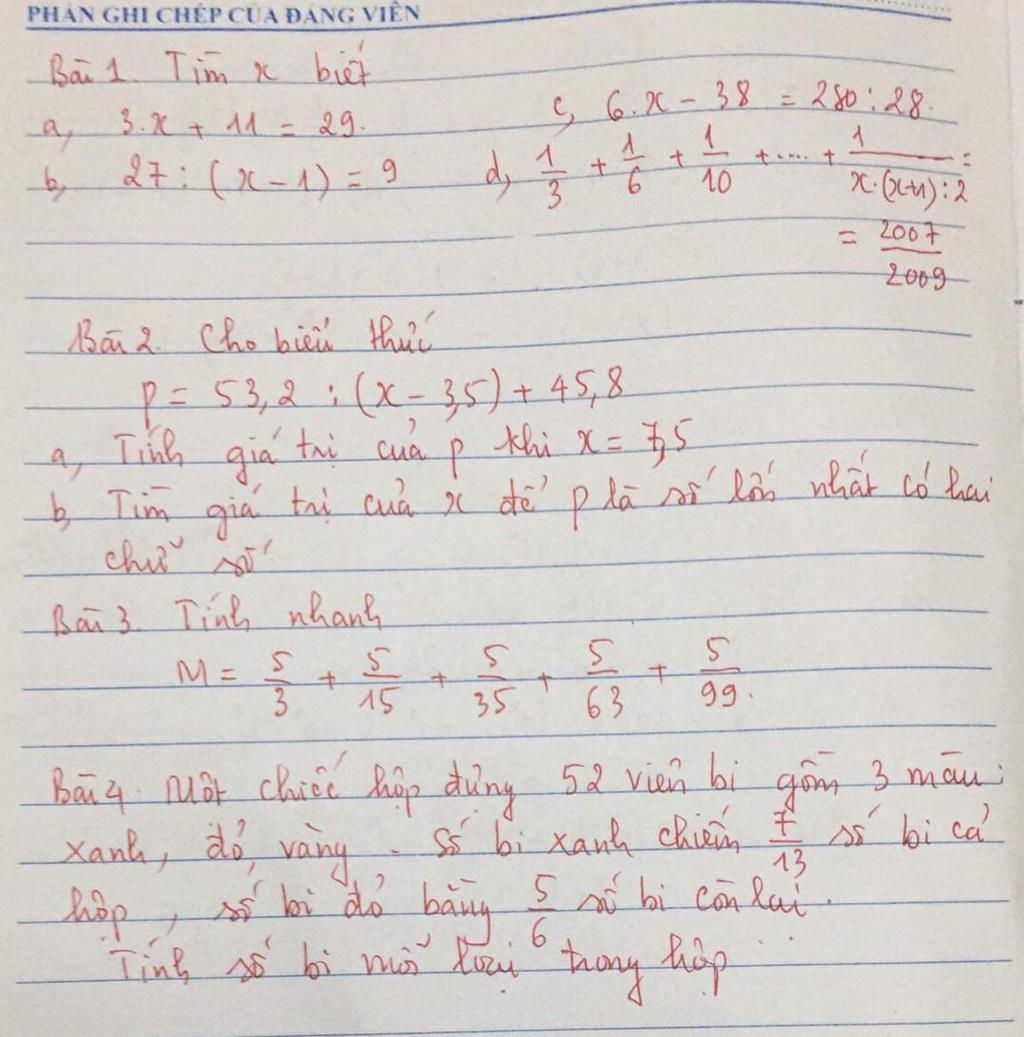 PHẦN GHI CHÉP CỦA ĐẢNG VIÊN
Bài 1. Tìm x biết
a, 3.x + 11 = 29.
c, 6.x - 38 = 280 : 28.
b, 27 : (x - 1) = 9
d, 1/3 + 1/6 + 1/10 + .... + 1/x.(x+1):2 =
= 2007/2009
Bài 2. Cho biểu thức
P = 53,2 : (x - 3,5) + 45,8
a, Tính giá trị của P khi x = 7,5
b, Tìm giá trị của x để P là số lớn nhất có hai
chữ số
Bài 3. Tính nhanh
M = 5/3 + 5/15 + 5/35 + 5/63 + 5/99.
Bài 4. Một chiếc hộp đựng 52 viên bi gồm 3 màu:
xanh, đỏ, vàng. Số bi xanh chiếm 7/13 số bi cả
hộp, số bi đỏ bằng 5/6 số bi còn lại.
Tính số bi mỗi loại trong hộp